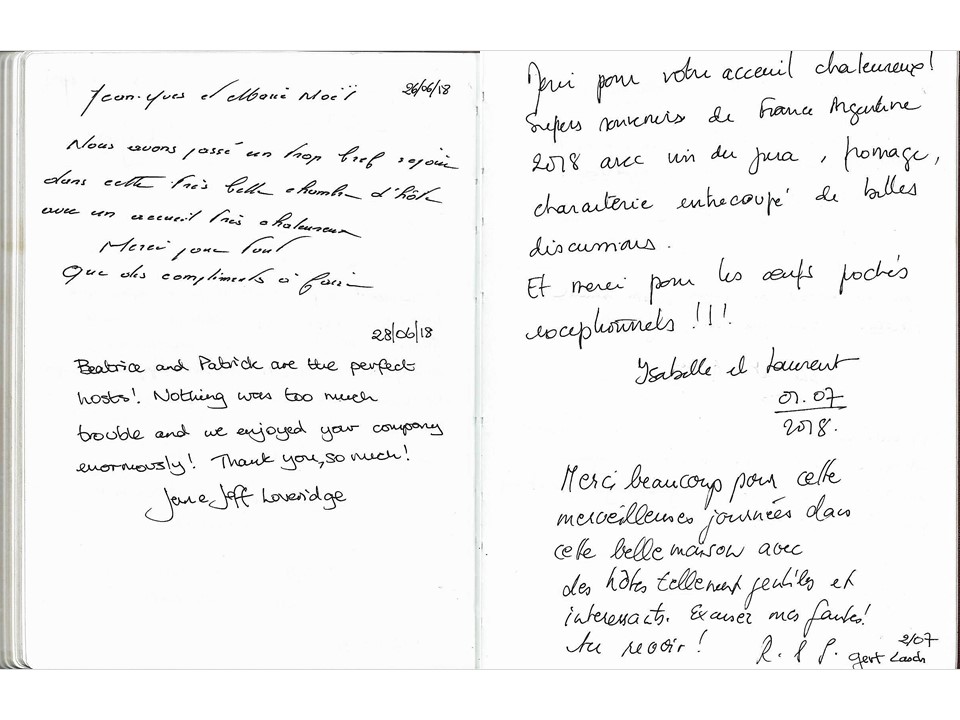 Jean-Yves et Marie Noël
26/06/18
Nous avons passé un trop bref séjour
dans cette très belle chambre d'hôte
avec un accueil très chaleureux
Merci pour tout
Que des compliments à faire
28/06/18
Beatrice and Patrick are the perfect
hosts! Nothing was too much
trouble and we enjoyed your company
enormously! Thank you, so much!
Jeff Loveridge
Merci pour votre acceuil chaleureux!
Supers souvenirs de France Argentine
2018 avec vin du jura, fromage,
charcuterie entrecoupé de belles
discussions.
Et merci pour les œufs pochés
exceptionnels !!!
Ysabelle et Laurent
01.07
2018.
Merci beaucoup pour cette
merveilleuses journées dans
cette belle maison avec
des hôtes tellement gentiles et
interessants. Excusez mes fautes!
Au revoir!
2/07
Gert